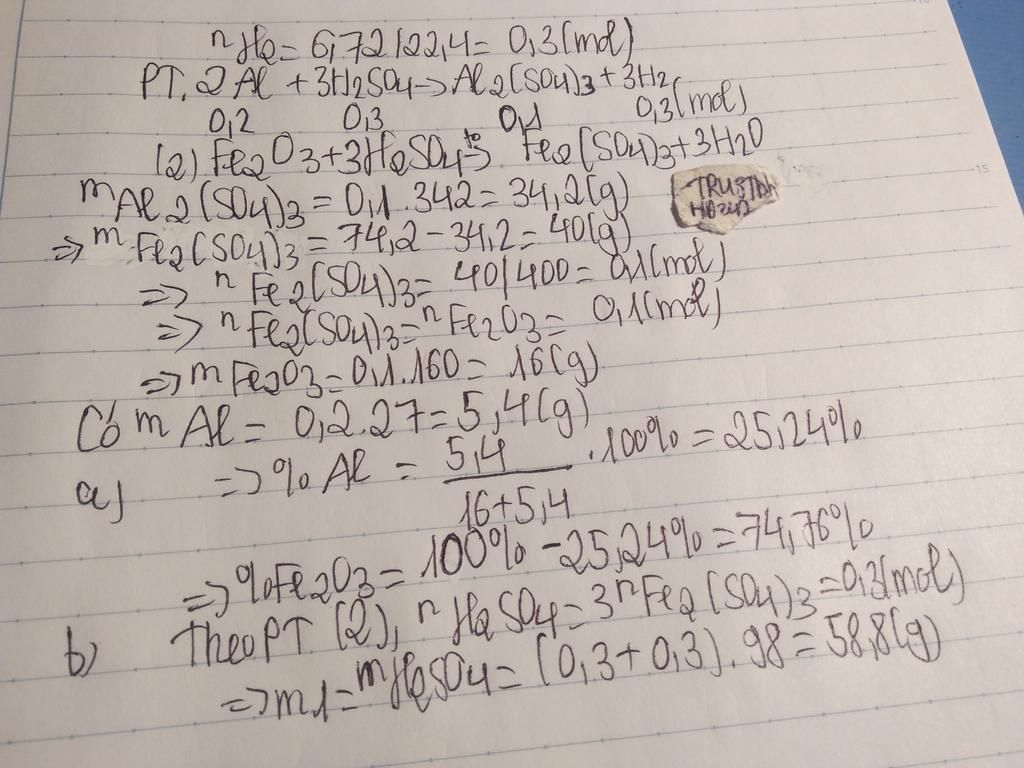 nH2 = 6,72/22,4 = 0,3(mol)
PT. 2Al + 3H2SO4 -> Al2(SO4)3 + 3H2
0,2 0,3 0,1 0,3(mol)
(2) Fe2O3+3H2SO4 -to-> Fe2(SO4)3+3H2O
mAl2(SO4)3 = 0,1.342 = 34,2(g)
=> mFe2(SO4)3 = 74,2-34,2 = 40(g)
=> nFe2(SO4)3 = 40/400 = 0,1(mol)
=> nFe2(SO4)3 = nFe2O3 = 0,1(mol)
=> mFe2O3 = 0,1.160 = 16(g)
Có mAl = 0,2.27 = 5,4(g)
a) => %Al = 5,4/16+5,4 .100% = 25,24%
=> %Fe2O3 = 100% -25,24% = 74,76%
b) Theo PT (2), nH2SO4 = 3nFe2(SO4)3 = 0,3(mol)
=> m1 = mH2SO4 = (0,3+0,3).98 = 58,8(g)